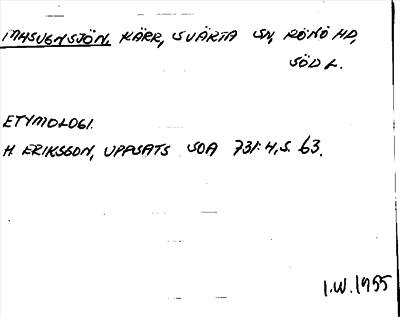 MASUGNSJÖN, KÄRR, SVÄRTA SN, RÖNÖ HD,
SÖD L.
ETYMOLOGI.
H. ERIKSSON, UPPSATS SOA 731:4, S. 63.
I.W. 1955